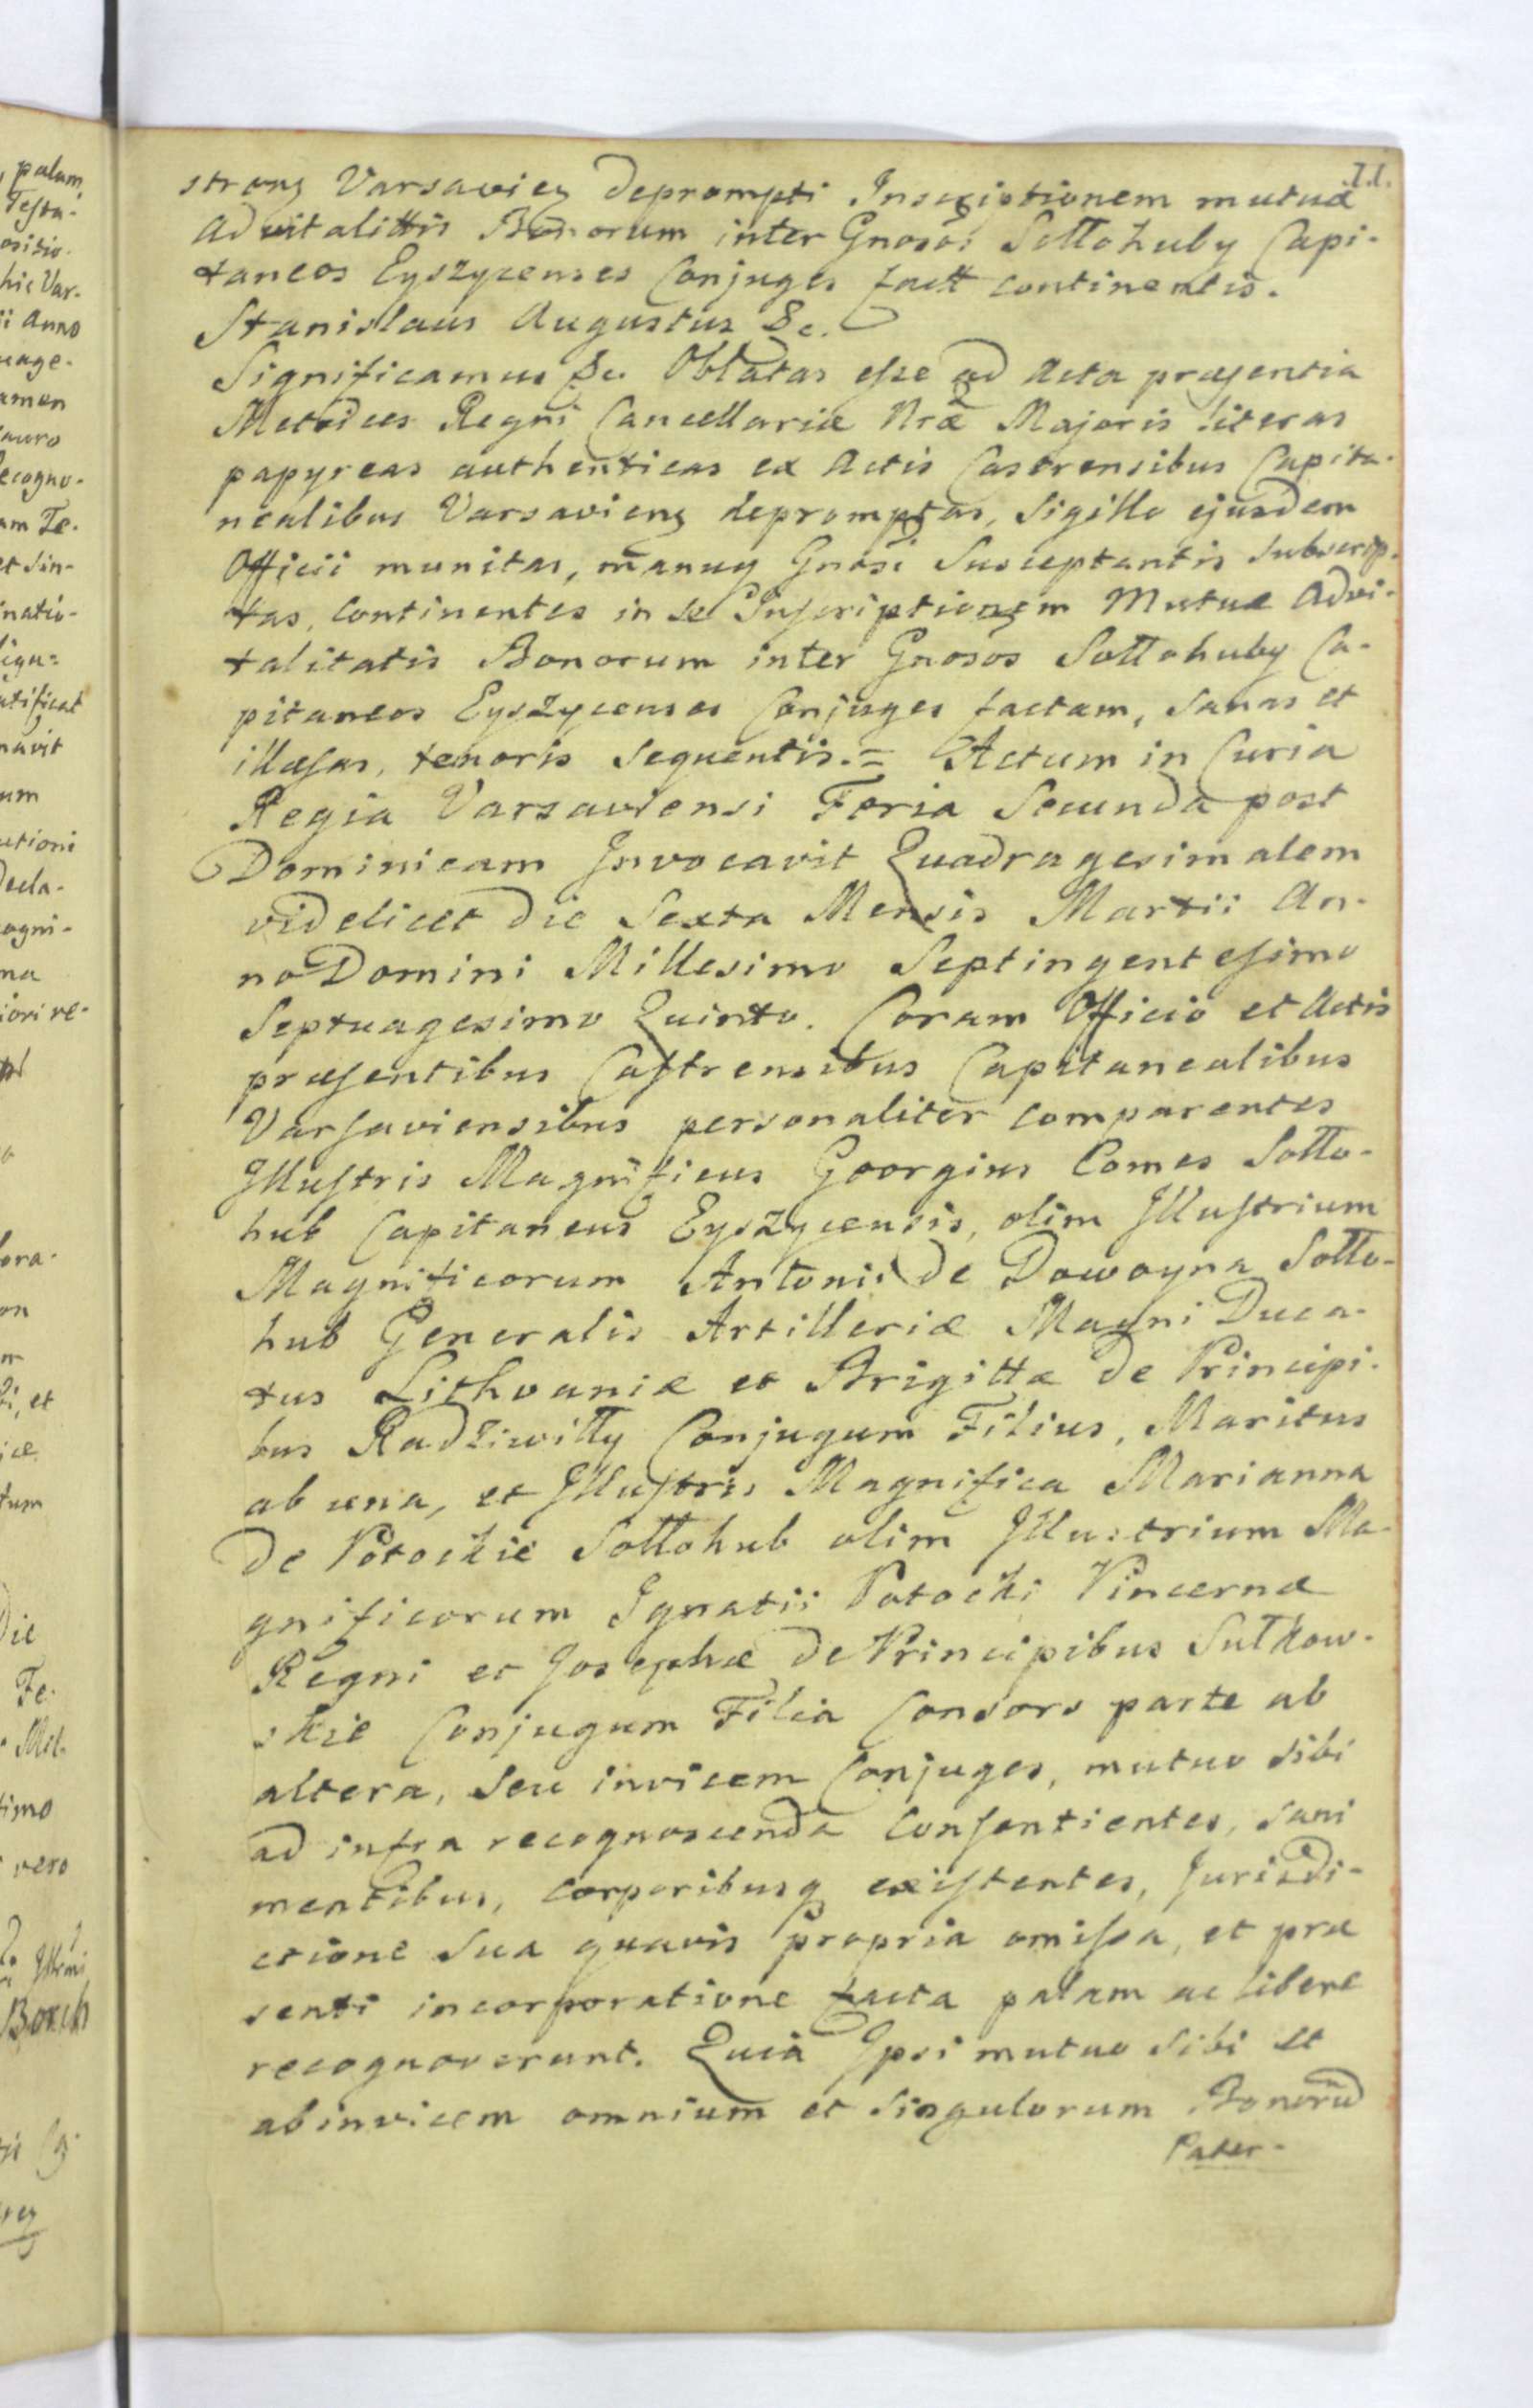 71.
strens Varsavien deprompti Inscriptionem mutuæ
Advitalittis Bonorum inter Gnosos Sollohuby Capi-
taneos Eyszycenses Conjuges fact continentis.
Stanislaus Augustus &c.
Significamus &c. Oblatas esse ad Acta præsentia
Metrices Regni Cancellariæ Nræ Majoris literas
papyreas authenticas ex Actis Castrensibus Capita-
nealibus Varsaviens depromptas, Sigillo ejusdem
Officii munitas, manuq Gnosi Susceptantis Subscrip-
tas, Continentes in se Inscriptionem Mutuæ Advi-
talitatis Bonorum inter Gnosos Sollohuby Ca-
pitaneos Eyszycenses Conjuges factam, Sanas et
illæsas, tenoris Sequentis.= Actum in Curia
Regia Varsaviensi Feria Secunda post
Dominicam Invocavit Quadragesimalem
videlicet die Sexta Mensis Martii An-
no Domini Millesimo Septingentesimo
Septuagesimo Quinto. Coram Officio et Actis
præsentibus Castrensibus Capitanealibus
Varsaviensibus personaliter comparentes
Illustris Magnificus Georgius Comes Sollo-
hub Capitaneus Eyszycensis, olim Illustrium
Magnificorum Antonii de Dowoyna Sollo-
hub Generalis Artilleriæ Magni Duca-
tus Lithvaniæ et Brigittæ de Principi-
bus Radziwilly Conjugum Filius, Maritus
ab una, et Illustris Magnifica Marianna
de Potockie Sollohub olim Illustrium Ma-
gnificorum Ignatii Potocki Pincernæ
Regni et Josephæ de Principibus Sulkow-
skie Conjugum Filia Consors parte ab
altera, Seu invicem Conjuges, mutuo sibi
ad infra recognoscenda Consentientes, sani
mentibus, corporibusq existentes, Jurisdi-
ctione Sua quavis propria omissa, et præ
senti incorporatione facta palam ac libere
recognoverunt. Quia Ipsi mutuo sibi et
abinvicem omnium et Singulorum Bonorū
Pater-